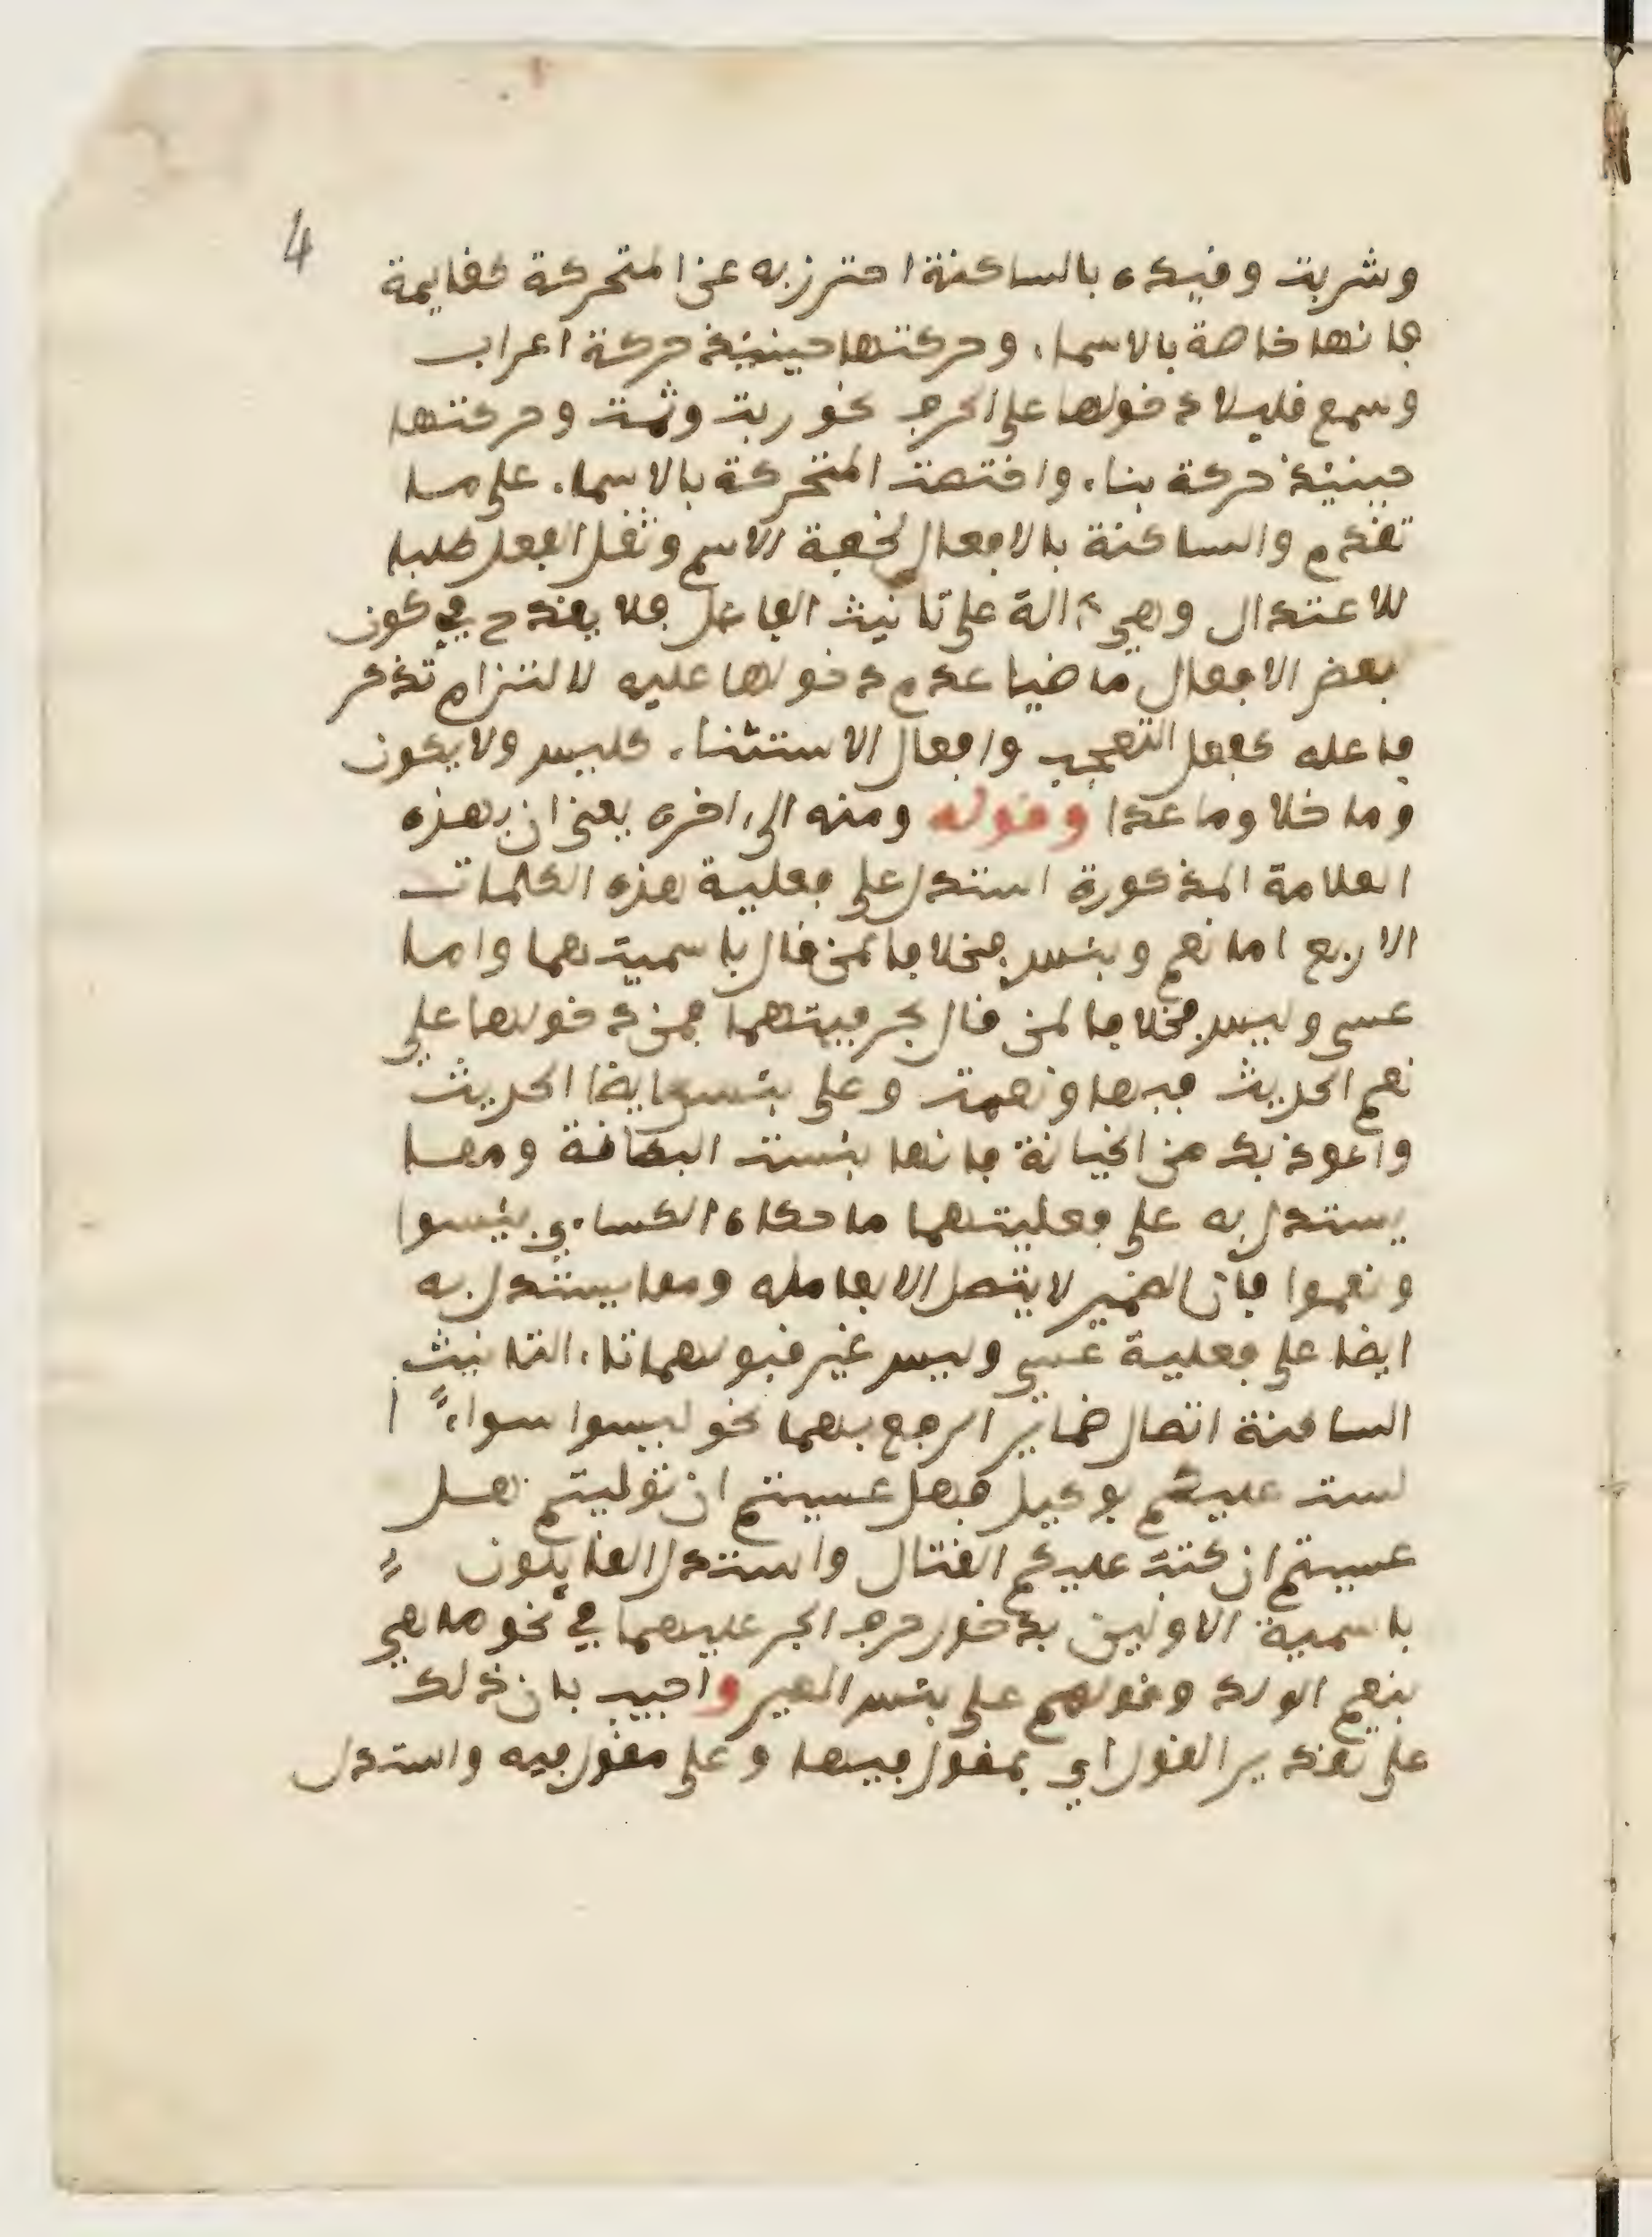 4
وشربت وقيده بالساكنة احترز به عن المتحركة كقايمة
فانها خاصة بالاسماء وحركتها حينيذ حركة اعراب
وسمع قليلا دخولها على الحرف نحو ربت وثمت وحركتها
حينيذ حركة بناء واختصت المتحركة بالاسماء على ما
تقدم والساكنة بالافعال لخفة الاسم وثقل الفعل طلبا
للاعتدال وهي دالة على تانيث الفاعل فلا يقدح في كون
بعض الافعال ماضيا عدم دخولها عليه لالتزام تذكر
فاعله كفعل التعجب وافعال الاستثناء كليس ولا يكون
وما خلا وما عدا وقوله ومنه الى اخره يعني ان بهذه
العلامة المذكورة استدل على فعلية هذه الكلمات
الاربع اما نعم وبئس فخلافا لمن قال باسميتهما واما
عسى وليس فخلافا لمن قال بحرفيتهما فمن دخولها على
نعم الحديث فبها ونعمت وعلى بئس ايضا الحديث
واعوذ بك من الخيانة فانها بئست البطانة ومما
يستدل به على فعليتهما ما حكاه الكساءي بئسوا
ونعموا فان الضمير لا يتصل الا بعامله ومما يستدل به
ايضا على فعلية عسى وليس غير قبولهما تاء التانيث
الساكنة اتصال ضماير الرفع بهما نحو ليسوا سواء ا
لست عليكم بوكيل فهل عسيتم ان توليتم هل
عسيتم ان كتب عليكم القتال واستدل القايلون
باسمية الاولين بدخول حرف الجر عليهما في نحو ما هي
بنعم الولد وقولهم على بئس العير واجيب بان ذلك
على تقدير القول اي بمقول فيها وعلى مقول فيه واستدل